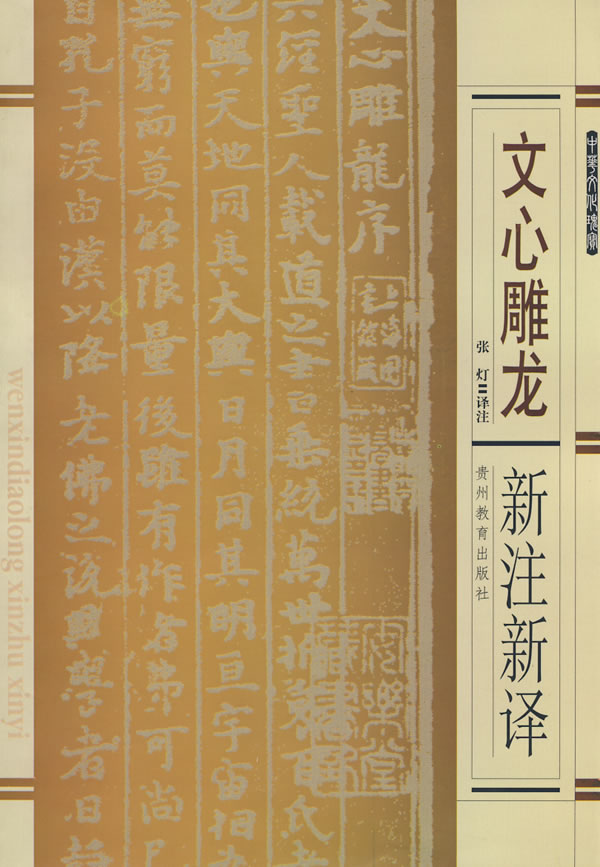 中華文化瑰寶
文心雕龙
新注新译
张灯〓译注
贵州教育出版社
文心雕龍序
六經聖人載道之書垂統萬世折衷百氏者
也與天地同其大與日月同其明亘宇宙相
無窮而莫能限量後雖有作者弗可尚已
自孔子沒由漢以降老佛之說興學者日
wenxindiaolong xinzhu xinyi